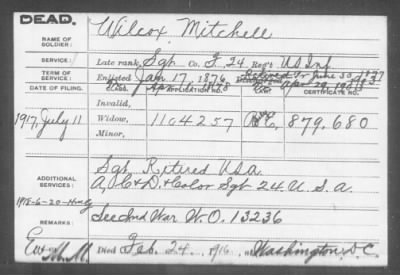 DEAD.
Wilcox Mitchell
NAME OF
SOLDIER:
SERVICE:
Late rank, Sgt Co. F, 24 Reg't US Inf
TERM OF
SERVICE:
Enlisted Jan 17, 1876, Retired June 30
DATE OF FILING.
CLASS.
APPLICATION NO.
CERTIFICATE NO.
Invalid,
1917, July 11
Widow,
1104257
879,680
Minor,
ADDITIONAL
SERVICES:
Sgt Retired USA
& Color Sgt 24. U.S.A.
REMARKS:
War W.O. 13236
Died Feb. 24, 1916, Washington, D.C.